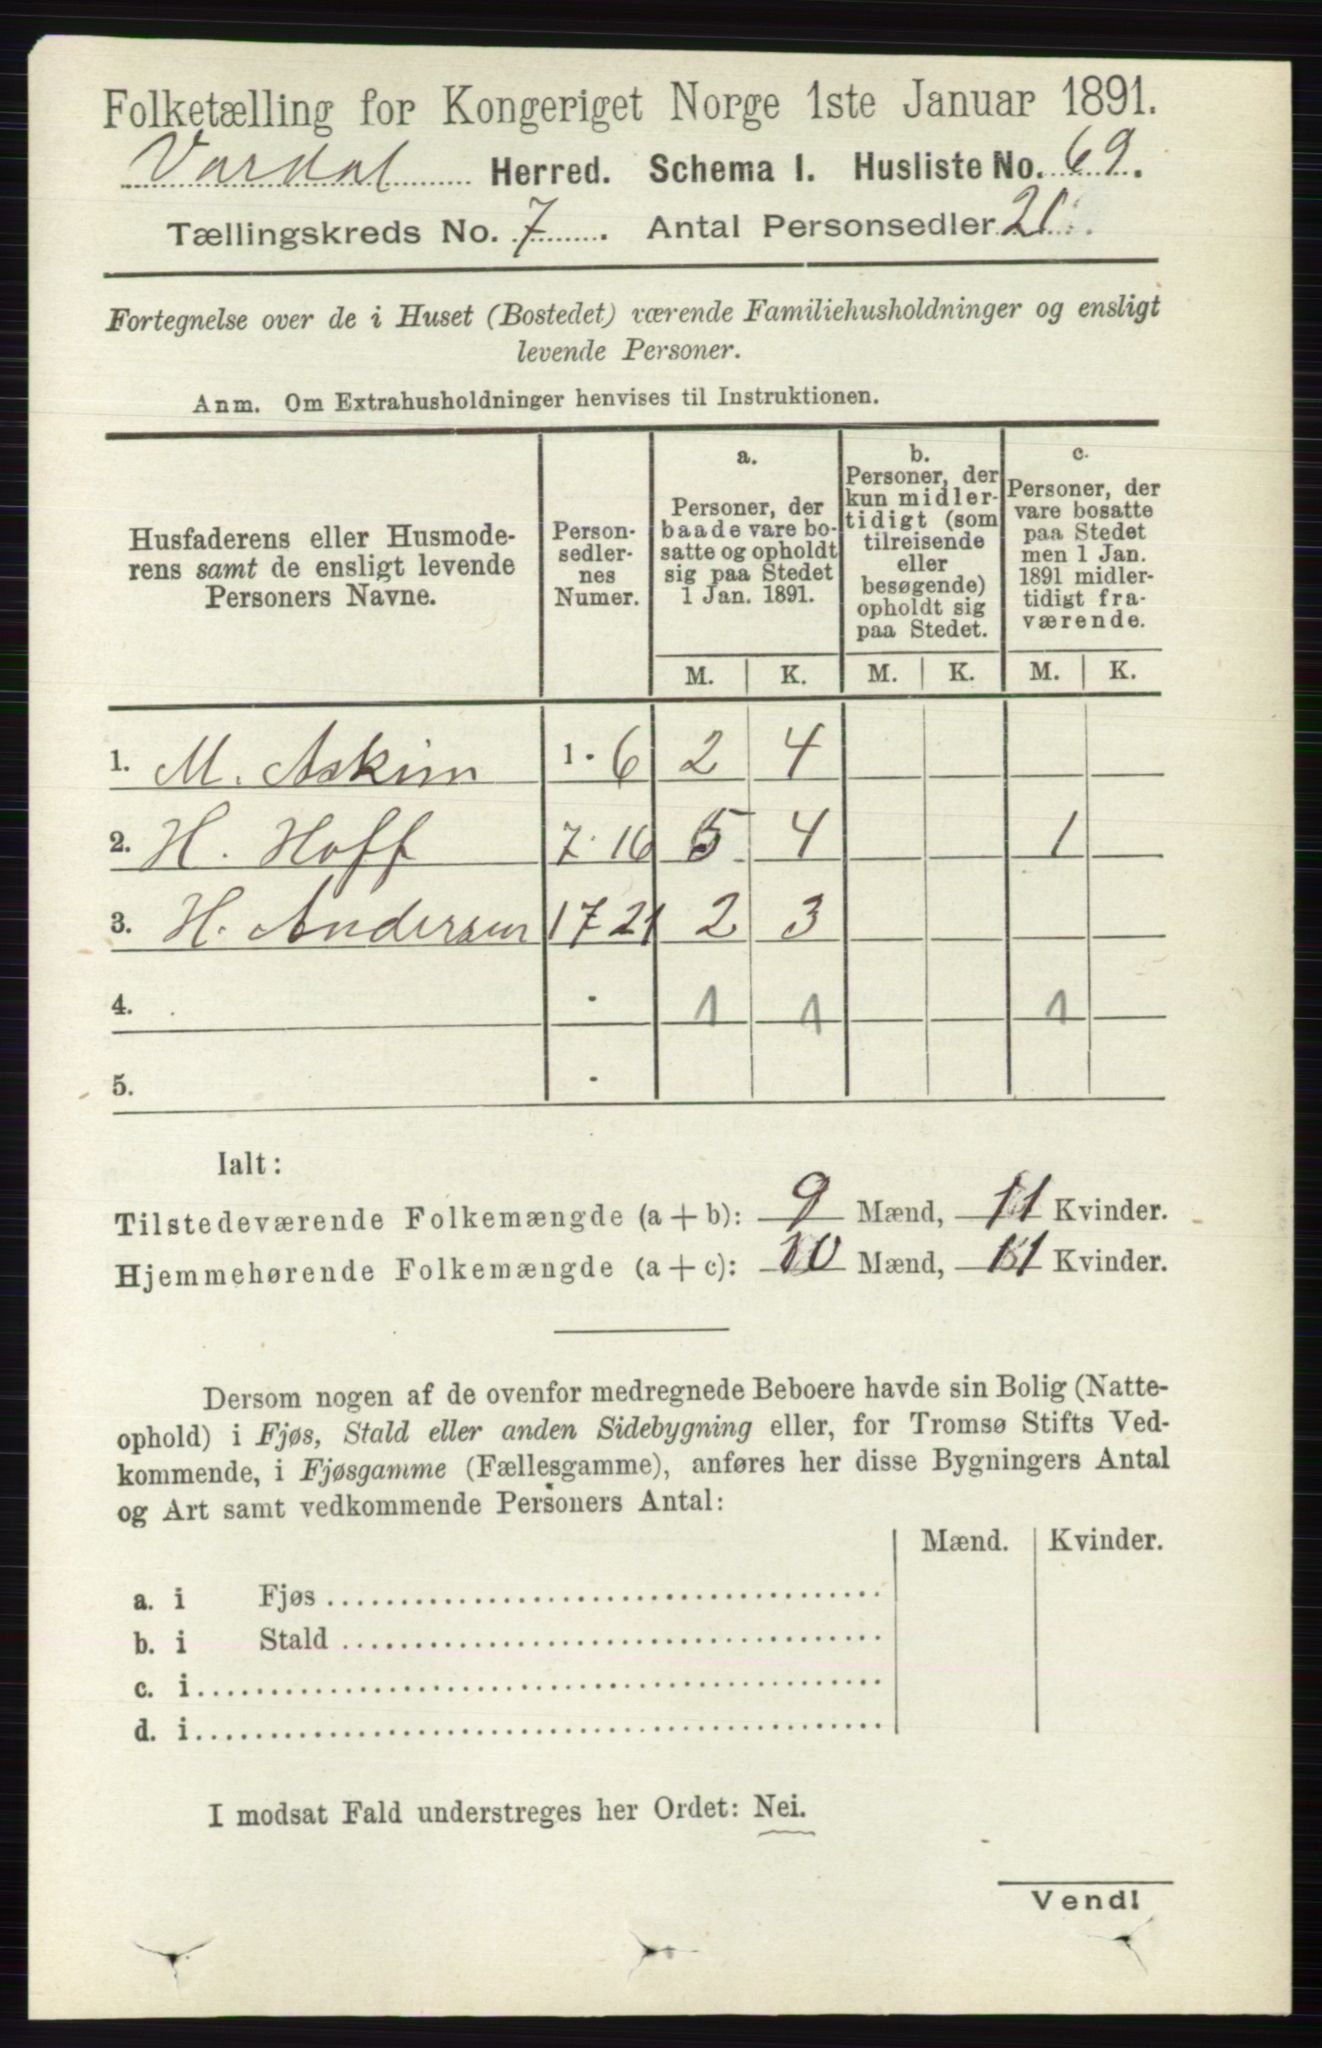 Folketælling for Kongeriget Norge 1ste Januar 1891.
Vardal Herred. Schema I. Husliste No. 69.
Tællingskreds No. 7. Antal Personsedler
Fortegnelse over de i Huset (Bostedet) værende Familiehusholdninger og ensligt
levende Personer.
Anm. Om Extrahusholdninger henvises til Instruktionen.
Husfaderens eller Husmode-
rens samt de ensligt levende
Personers Navne.
Person-
sedler-
nes
Numer.
a.
Personer, der
baade vare bo-
satte og opholdt
sig paa Stedet
1 Jan. 1891.
b.
Personer, der
kun midler-
tidigt (som
tilreisende
eller
besøgende)
opholdt sig
paa Stedet.
c.
Personer, der
vare bosatte
paa Stedet
men 1 Jan.
1891 midler-
tidigt fra-
værende.
M. K. M. K. M. K.
1. M. Askim 1 - 6 2 4
2. H. Hoff 7 - 16 5 4 1
3. H. Andersen 17 21 2 3
4. 1 1 1
5.
Ialt:
Tilstedeværende Folkemængde (a + b): 9 Mænd, 11 Kvinder.
Hjemmehørende Folkemængde (a + c): 10 Mænd, 11 Kvinder.
Dersom nogen af de ovenfor medregnede Beboere havde sin Bolig (Natte-
ophold) i Fjøs, Stald eller anden Sidebygning eller, for Tromsø Stifts Ved-
kommende, i Fjøsgamme (Fællesgamme), anføres her disse Bygningers Antal
og Art samt vedkommende Personers Antal:
Mænd. Kvinder.
a. i Fjøs
b. i Stald
c. i
d. i
I modsat Fald understreges her Ordet: Nei.
Vend!